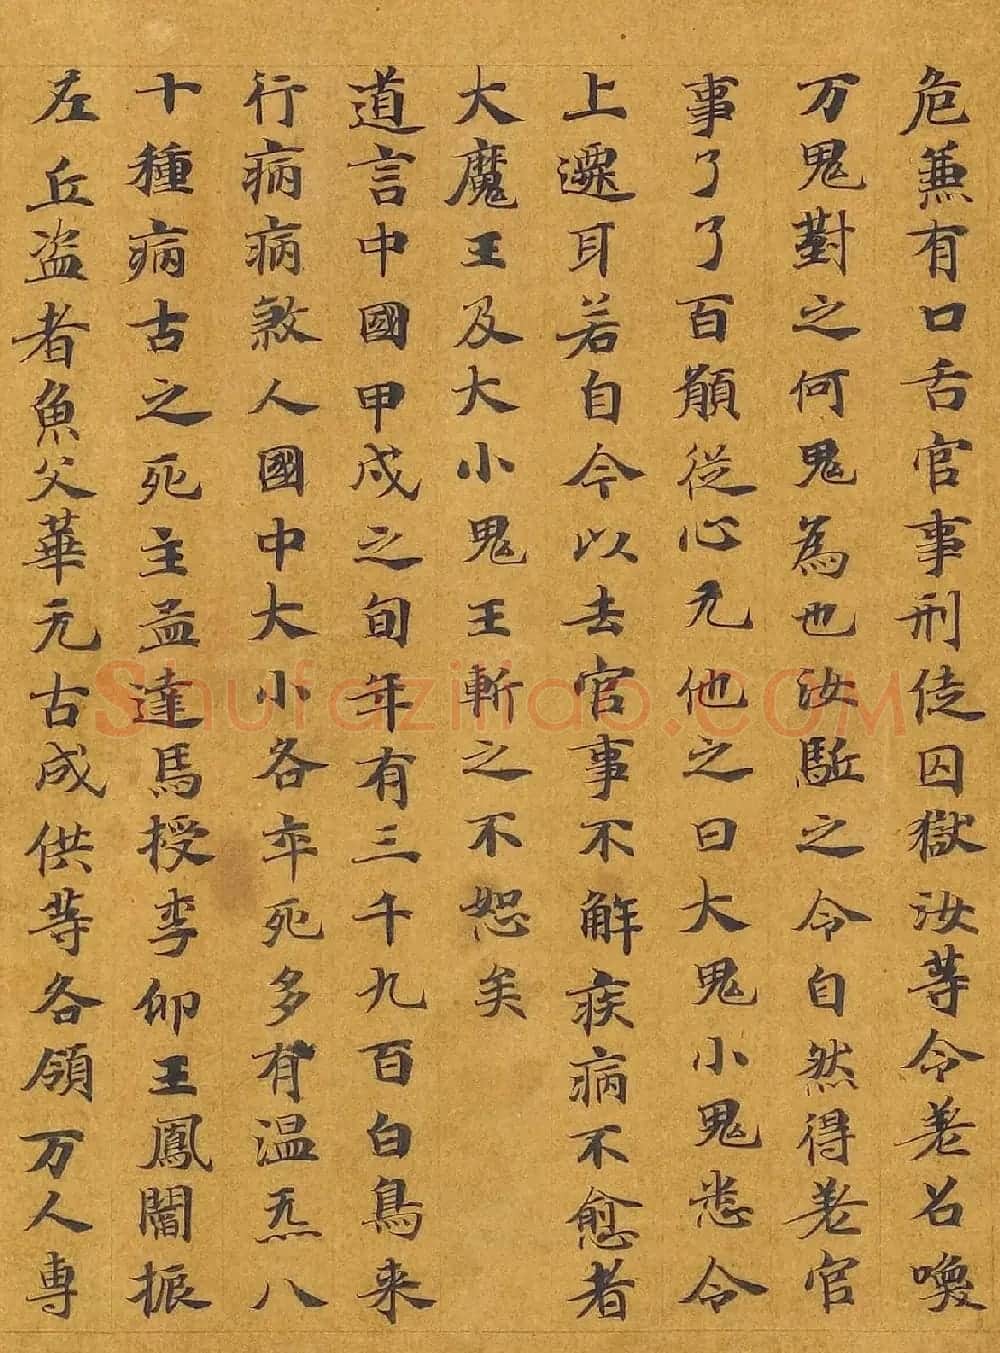 危蕙有口舌官事刑徒囚獄汝等令差名喚
万鬼對之何鬼為也汝駈之令自然得差官
事了了百願從心无他之曰大鬼小鬼悉令
上遷耳若自今以去官事不解疾病不愈者
大魔王及大小鬼王斬之不恕矣
道言中國甲戌之旬年有三千九百白鳥来
行病病煞人國中大小各卒死多有温炁八
十種病古之死主孟達馬授李仰王鳳闇振
左丘盗者魚父華元古成供等各領万人専
Shufaziliao.COM